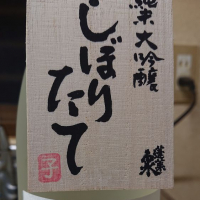 純米大吟醸
しぼり
たて
蓬莱
子